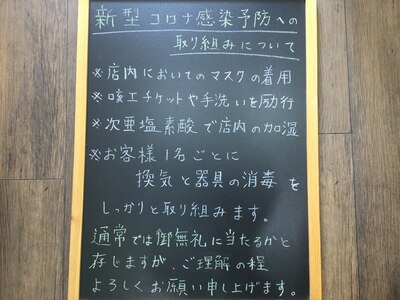 新型コロナ感染予防への
取り組みについて
※店内においてのマスクの着用
※咳エチケットや手洗いを励行
※次亜塩素酸で店内の加湿
※お客様1名ごとに
換気と器具の消毒を
しっかりと取り組みます。
通常では御無礼に当たるかと
存じますが、ご理解の程
よろしくお願い申し上げます。